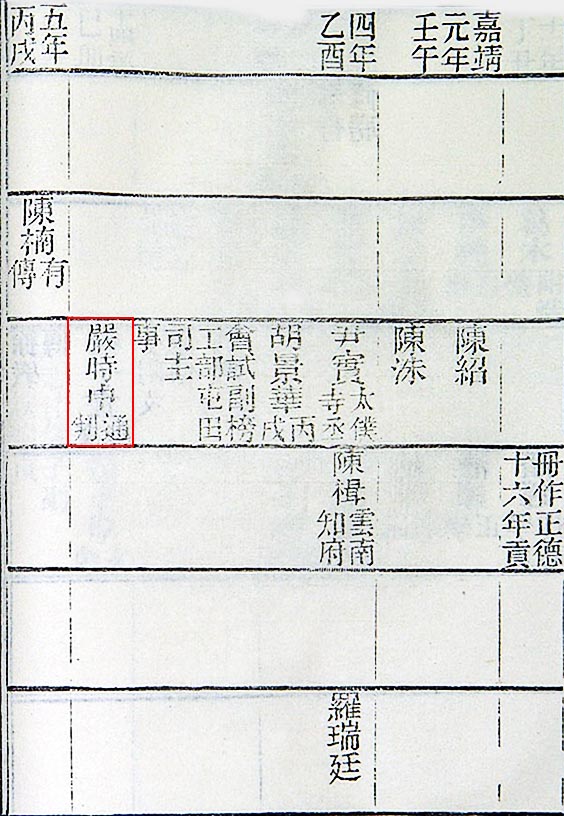 嘉靖
元年
壬午
四年
乙酉
五年
丙戌
陳楠
有
傳
陳紹
陳洙
尹實
太僕
寺丞
胡景華
丙
戌
會試副榜
工部屯田
司主
事
嚴時申
通
判
冊作正德
十六年貢
陳緝
雲南
知府
羅瑞廷